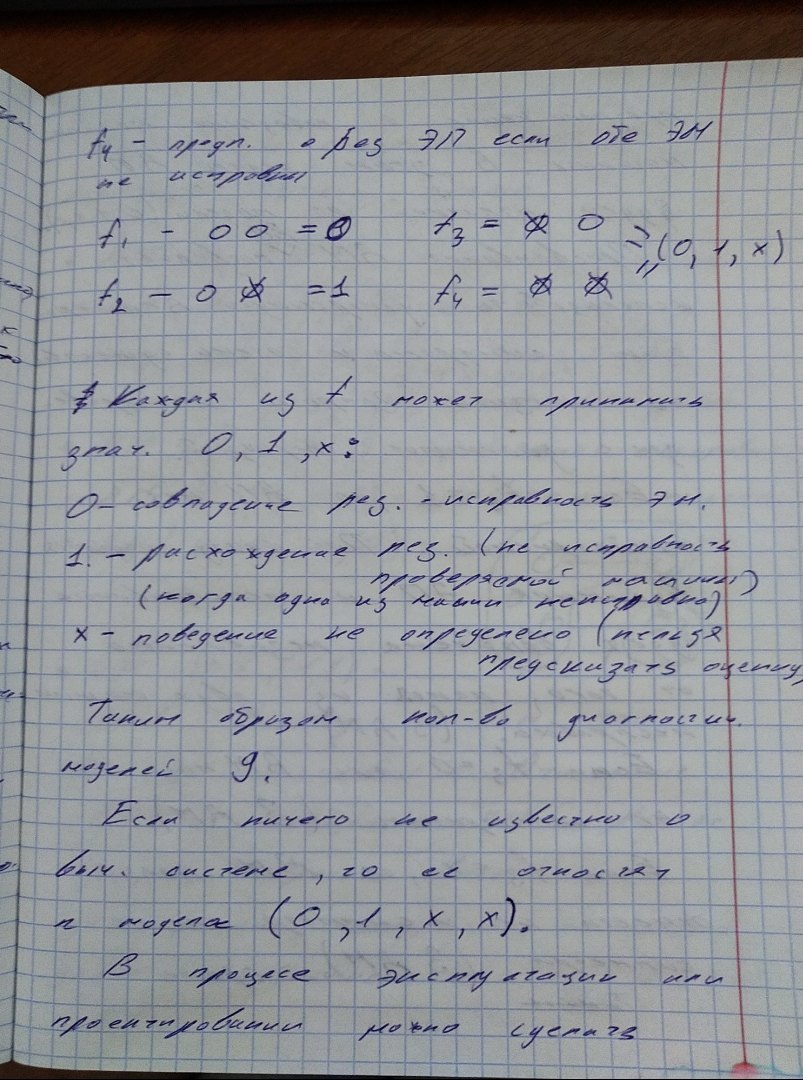 f4 – предп. о рез ЭП если обе ЭМ
не исправны
f1 – 0 0 = 0 f3 = X 0
=> (0, 1, x)
f2 – 0 X = 1 f4 = X X
Каждая из f может принимать
знач. 0, 1, x:
0 – совпадение рез. - исправность ЭМ.
1. – расхождение рез. (не исправность
проверяемой машины)
(когда одна из машин неисправна)
x – поведение не определено (нельзя
предсказать оценку)
Таким образом кол-во диагностич.
моделей 9.
Если ничего не известно о
выч. системе, то ее относят
к модели (0, 1, x, x).
В процесе эксплуатации или
проектировании можно сделать